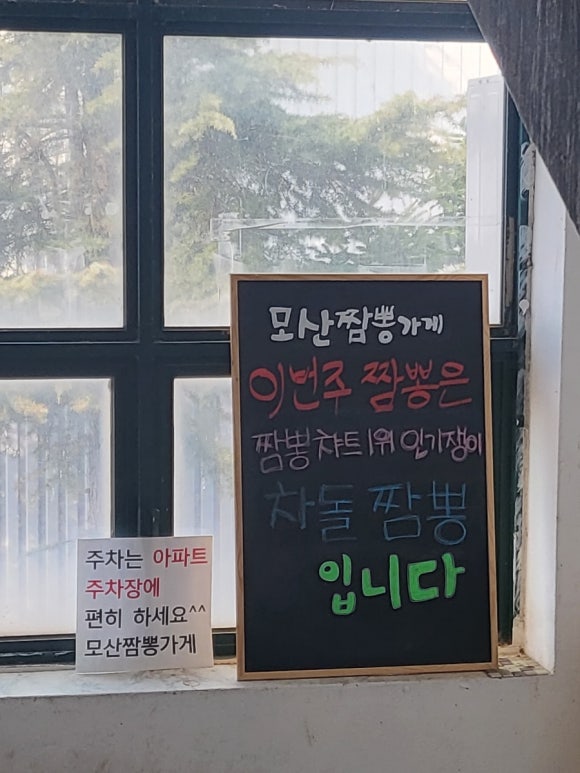 모산짬뽕가게
이번주 짬뽕은
짬뽕 챠트 1위 인기쟁이
차돌 짬뽕
입니다
주차는 아파트
주차장에
편히 하세요^^
모산짬뽕가게